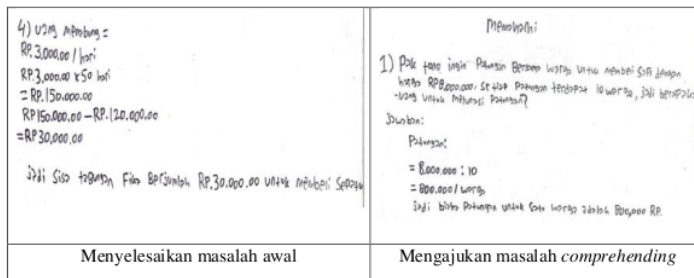 4) uang menabung =
RP. 3.000,00 / hari
RP. 3.000,00 x 50 hari
= RP. 150.000.00
RP 150.000.00 – RP. 120.000.00
= RP 30.000,00
Jadi sisa tabungan Fika Berjumlah RP. 30.000.00 untuk membeli sepatu
Memahami
1) Pak tono ingin Patungan Bersama warga untuk membeli Sapi dengan
harga RP8.000.000, setiap Patungan terdapat 10 warga, jadi berapakah
uang untuk melunasi Patungan?
Jawaban:
Patungan:
= 8.000.000 : 10
= 800.000 / warga
Jadi biaya Patungan untuk satu warga adalah 800,000 RP.
Menyelesaikan masalah awal
Mengajukan masalah comprehending